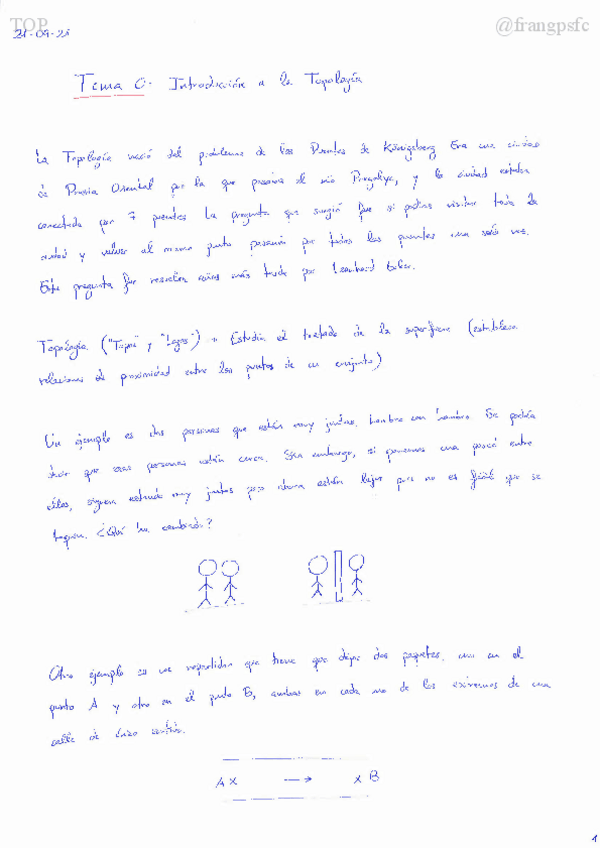 TOP
@frangpsfc
21-09-23
Tema 0. Introducción a la Topología
La Topología nació del problema de los Puentes de Königsberg. Era una ciudad
de Prusia Oriental por la que pasaba el río Pregolya, y la ciudad estaba
conectada por 7 puentes. La pregunta que surgió fue si podías visitar toda la
ciudad y volver al mismo punto pasando por todos los puentes una sola vez.
Esta pregunta fue resuelta años más tarde por Leonhard Euler.
Topología ("Topos" y "Logos") Estudia el tratado de la superficie (establece
relaciones de proximidad entre los puntos de un conjunto)
Un ejemplo es dos personas que están muy juntas, hombro con hombro. Se podría
decir que esas personas están cerca. Sin embargo, si ponemos una pared entre
ellos, siguen estando muy juntos pero ahora están lejos pues no es fácil que se
toquen. ¿Qué ha cambiado?
Otro ejemplo es un repartidor que tiene que dejar dos paquetes, uno en el
punto A y otro en el punto B, ambos en cada uno de los extremos de una
calle de único sentido.
A x → x B
1